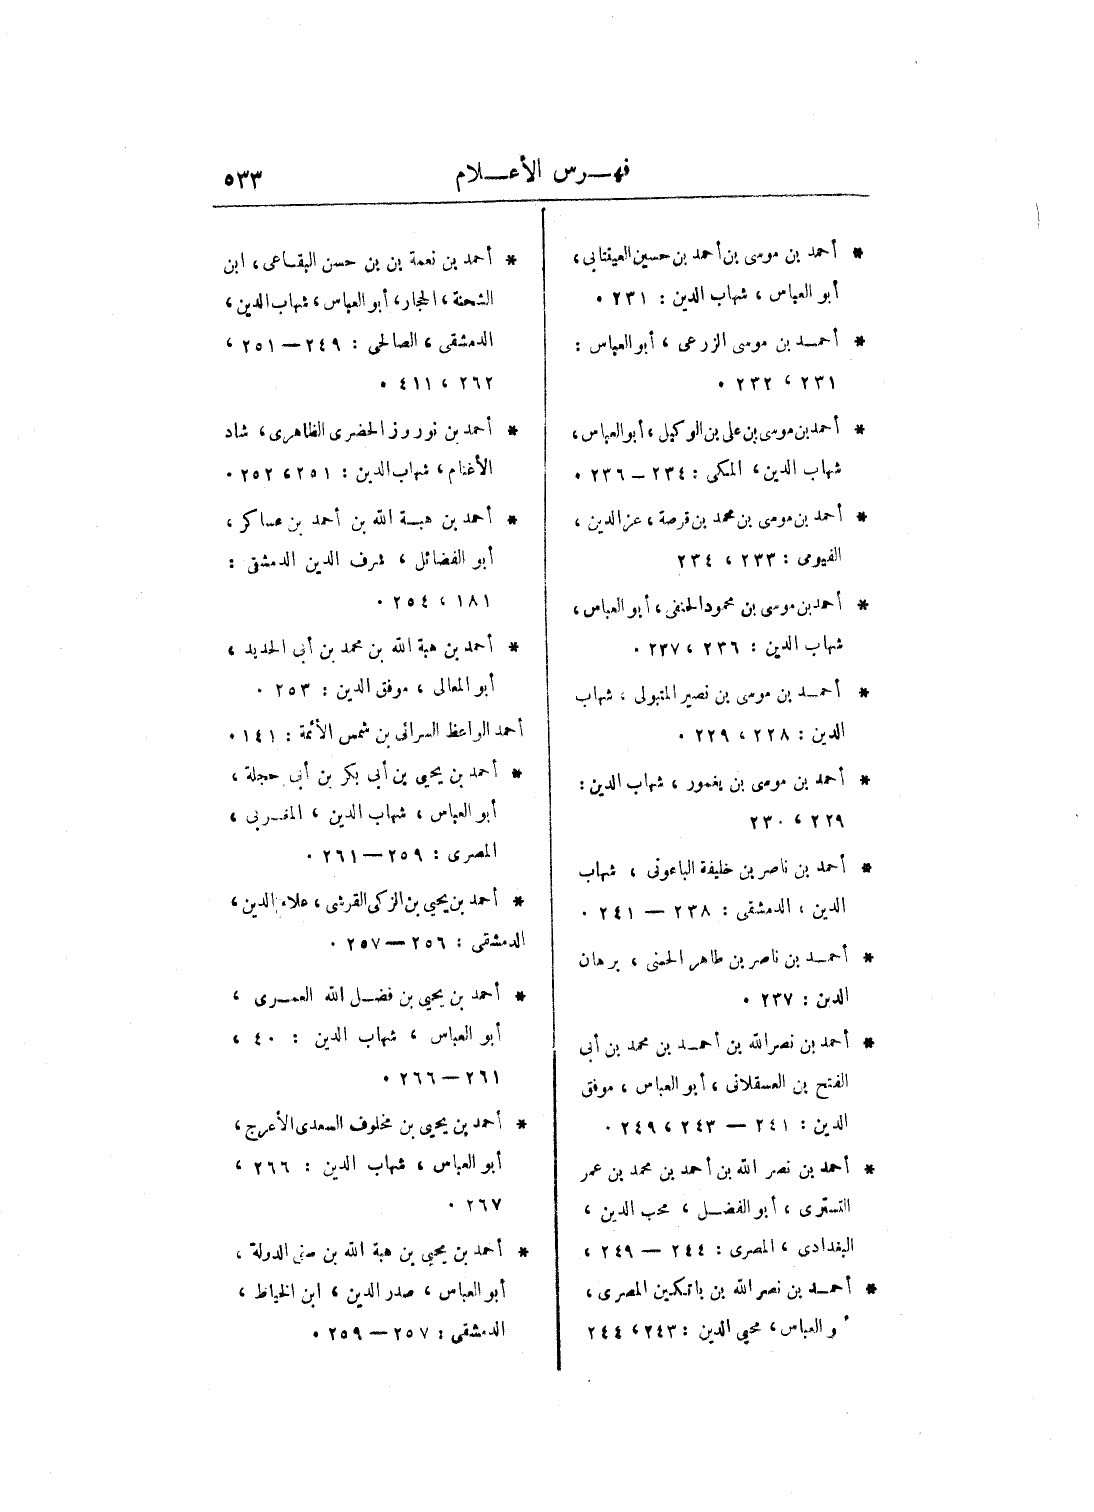 فهرس الأعلام ٥٣٣
* أحمد بن موسى بن أحمد بن حسين العينتابى ،
أبو العباس ، شهاب الدين : ٢٣١ ٠
* أحمد بن موسى الزرعى ، أبو العباس :
٢٣١ ، ٢٣٢ ٠
* أحمد بن موسى بن على بن الوكيل ، أبو العباس ،
شهاب الدين ، المكى : ٢٣٤ — ٢٣٦ ٠
* أحمد بن موسى بن محمد بن قرصة ، عز الدين ،
الفيومى : ٢٣٣ ، ٢٣٤
* أحمد بن موسى بن محمود الحنفى ، أبو العباس ،
شهاب الدين : ٢٣٦ ، ٢٣٧ ٠
* أحمد بن موسى بن نصير المتبولى ، شهاب
الدين : ٢٢٨ ، ٢٢٩ ٠
* أحمد بن موسى بن يغمور ، شهاب الدين :
٢٢٩ ، ٢٣٠
* أحمد بن ناصر بن خليفة الباعونى ، شهاب
الدين ، الدمشقى : ٢٣٨ — ٢٤١ ٠
* أحمد بن ناصر بن طاهر الحسنى ، برهان
الدين : ٢٣٧ ٠
* أحمد بن نصر الله بن أحمد بن محمد بن أبى
الفتح بن العسقلانى ، أبو العباس ، موفق
الدين : ٢٤١ — ٢٤٣ ، ٢٤٩ ٠
* أحمد بن نصر الله بن أحمد بن محمد بن عمر
التسترى ، أبو الفضل ، محب الدين ،
البغدادى ، المصرى : ٢٤٤ — ٢٤٩ ،
* أحمد بن نصر الله بن باتكين المصرى ،
و العباس ، محيى الدين : ٢٤٣ ، ٢٤٤
* أحمد بن نعمة بن بن حسن البقاعى ، ابن
الشحنة ، الحجار ، أبو العباس ، شهاب الدين ،
الدمشقى ، الصالحى : ٢٤٩ — ٢٥١ ،
٢٦٢ ، ٤١١ ٠
* أحمد بن نوروز الخضرى الظاهرى ، شاد
الأغنام ، شهاب الدين : ٢٥١ ، ٢٥٢ ٠
* أحمد بن هبة الله بن أحمد بن عساكر ،
أبو الفضائل ، شرف الدين الدمشقى :
١٨١ ، ٢٥٤ ٠
* أحمد بن هبة الله بن محمد بن أبى الحديد ،
أبو المعالى ، موفق الدين : ٢٥٣ ٠
أحمد الواعظ السرائى بن شمس الأئمة : ١٤١ ٠
* أحمد بن يحيى بن أبى بكر بن أبى حجلة ،
أبو العباس ، شهاب الدين ، المغربى ،
المصرى : ٢٥٩ — ٢٦١ ٠
* أحمد بن يحيى بن الزكى القرشى ، علاء الدين ،
الدمشقى : ٢٥٦ — ٢٥٧ ٠
* أحمد بن يحيى بن فضل الله العمرى ،
أبو العباس ، شهاب الدين : ٤٠ ،
٢٦١ — ٢٦٦ ٠
* أحمد بن يحيى بن مخلوف السعدى الأعرج ،
أبو العباس ، شهاب الدين : ٢٦٦ ،
٢٦٧ ٠
* أحمد بن يحيى بن هبة الله بن سنى الدولة ،
أبو العباس ، صدر الدين ، ابن الخياط ،
الدمشقى : ٢٥٧ — ٢٥٩ ٠